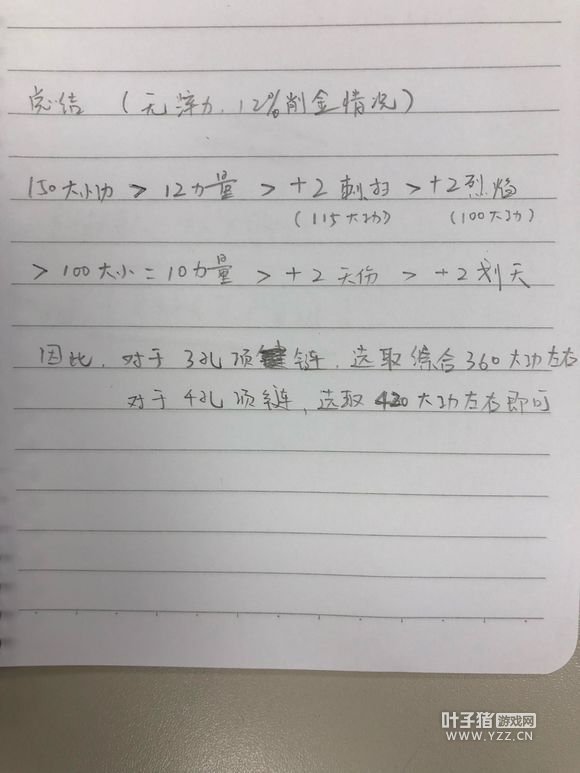 总结 (无浮力, 12%削金情况)
150大小功 > 12力量 > +2刺扫 > +2烈焰
(115大功) (100大功)
> 100大小 = 10力量 > +2天伤 > +2划天
因此, 对于3孔项链, 选取综合360大功左右
对于4孔项链, 选取420大功左右即可
叶子猪游戏网
WWW.YZZ.CN